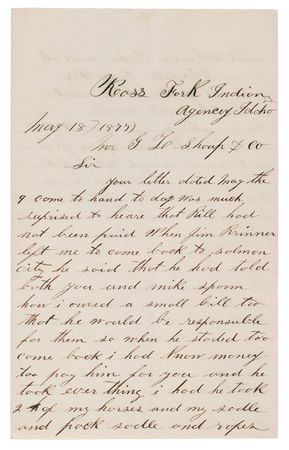 Ross Fork Indian
Agency Idaho
May 18 / 1877)
Mr G L Shoup & Co
Sir
your letter doted May the
9 come to hand to day was much
suprised to heare that Bill had
not been paid when Jim Skinner
left me to come back to salmon
City he said that he had told
both you and mike sponn
how i owed a small bill too
that he would be responsible
for them so when he started too
come back i had know money
too pay him for you and he
took ever thing i had he took
2 of my horses and my sadle
and pack sadle and ropes